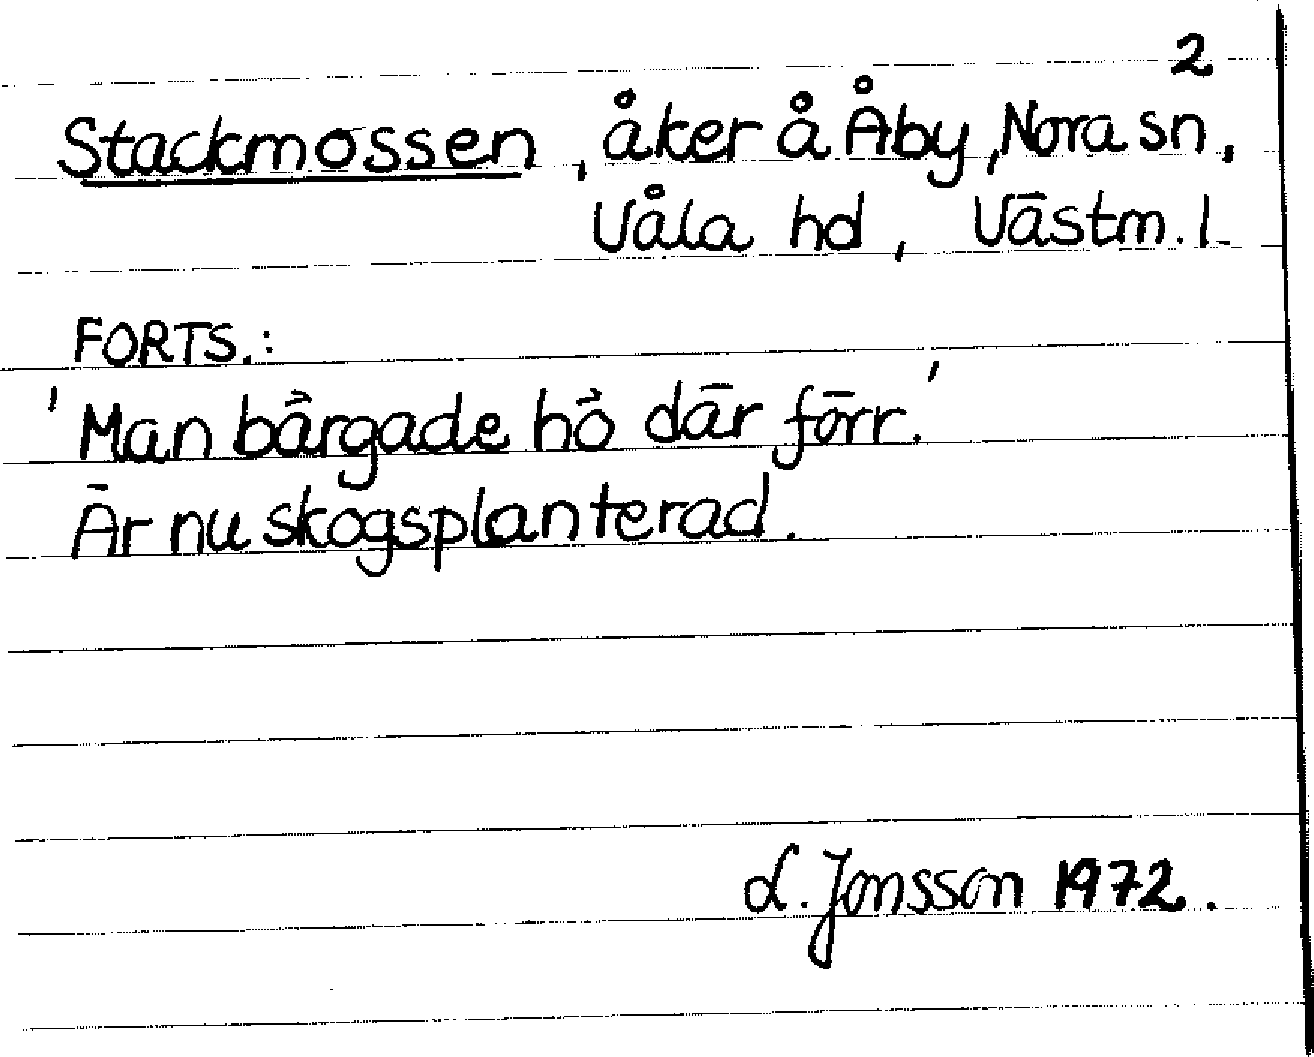 2
Stackmossen, åker å Åby, Nora sn.
Våla hd, Västm. l.
FORTS.:
'Man bärgade hö där förr.'
Är nu skogsplanterad.
L. Jonsson 1972.